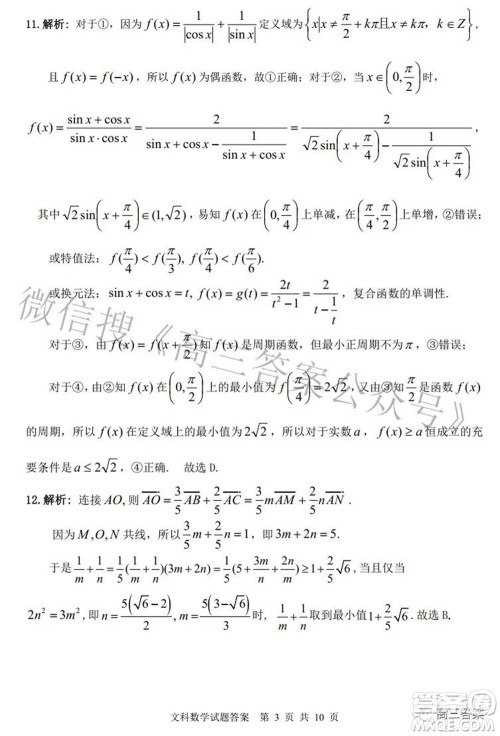 11. 解析: 对于①, 因为 f(x) = 1/|cos x| + 1/|sin x| 定义域为 {x | x ≠ π/2 + kπ且x ≠ kπ, k ∈ Z},
且 f(x) = f(−x), 所以 f(x) 为偶函数, 故①正确; 对于②, 当 x ∈ (0, π/2) 时,
f(x) = (sin x + cos x)/(sin x · cos x) = 2/(sin x + cos x − 1/(sin x + cos x)) = 2/(√2 sin(x + π/4) − 1/(√2 sin(x + π/4)))
其中 √2 sin(x + π/4) ∈ (1, √2), 易知 f(x) 在 (0, π/4) 上单减, 在 (π/4, π/2) 上单增, ②错误;
或特值法: f(π/4) < f(π/3) = f(π/6).
或换元法: sin x + cos x = t, f(x) = g(t) = 2t/(t² − 1) = 2/(t − 1/t), 复合函数的单调性.
对于③, 由 f(x) = f(x + π/2) 知 f(x) 是周期函数, 但最小正周期不为 π, ③错误;
对于④, 由 f(x) 在 (0, π/2) 上的最小值为 f(π/4) = 2√2, 又 π/2 是函数 f(x)
的周期, 所以 f(x) 在定义域上的最小值为 2√2, 所以对于实数 a, f(x) ≥ a 恒成立的充
要条件是 a ≤ 2√2, ④正确. 故选 D.
12. 解析: 连接 AO, 则 AO = 3/5 AB + 2/5 AC = 3/5 m AM + 2/5 n AN.
因为 M, O, N 共线, 所以 3/5 m + 2/5 n = 1, 即 3m + 2n = 5.
于是 1/m + 1/n = 1/5 (1/m + 1/n)(3m + 2n) = 1/5 (5 + 3m/n + 2n/m) ≥ 1 + 2/5 √6, 当
2n² = 3m², 即 n = 5(√6 − 2)/2, m = 5(3 − √6)/3 时, 1/m + 1/n 取到最小值 1 + 2/5 √6. 故选 B.
文科数学试题答案 第 3 页 共 10 页
微信搜《高三答案公众号》
高三答案